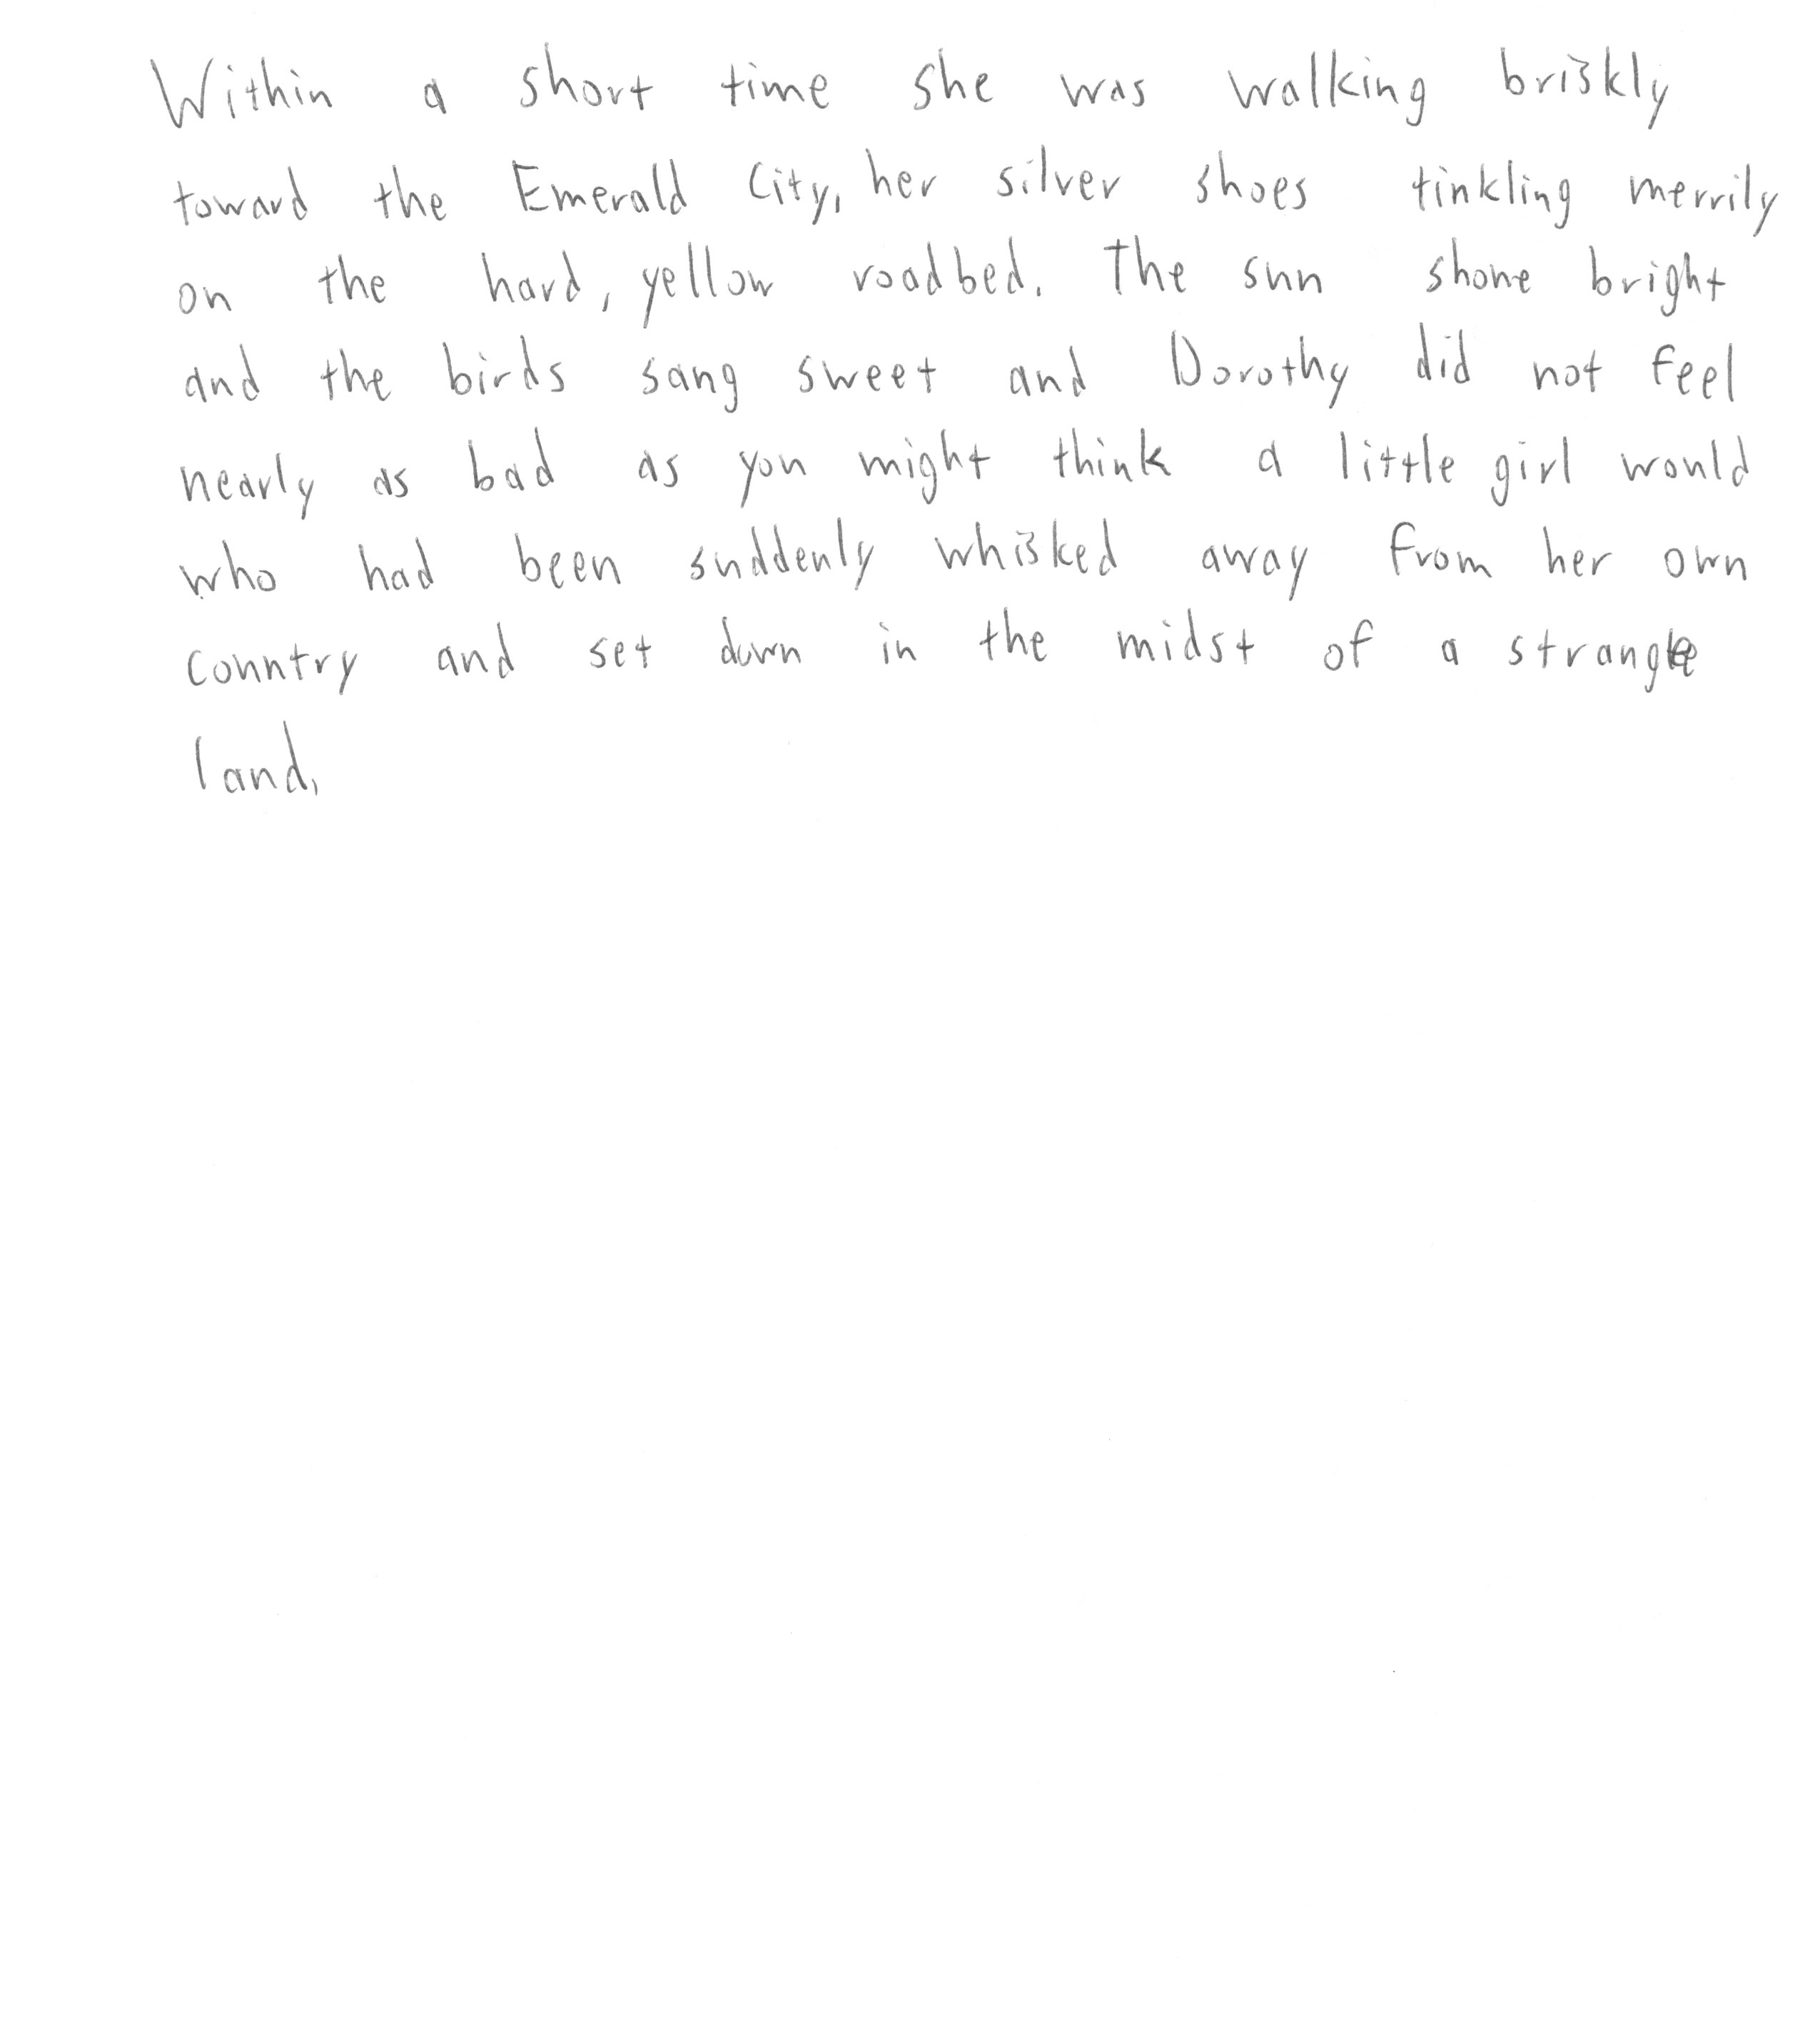 Within a short time she was walking briskly
toward the Emerald City, her silver shoes tinkling merrily
on the hard, yellow roadbed. The sun shone bright
and the birds sang sweet and Dorothy did not feel
nearly as bad as you might think a little girl would
who had been suddenly whisked away from her own
country and set down in the midst of a strange
land.